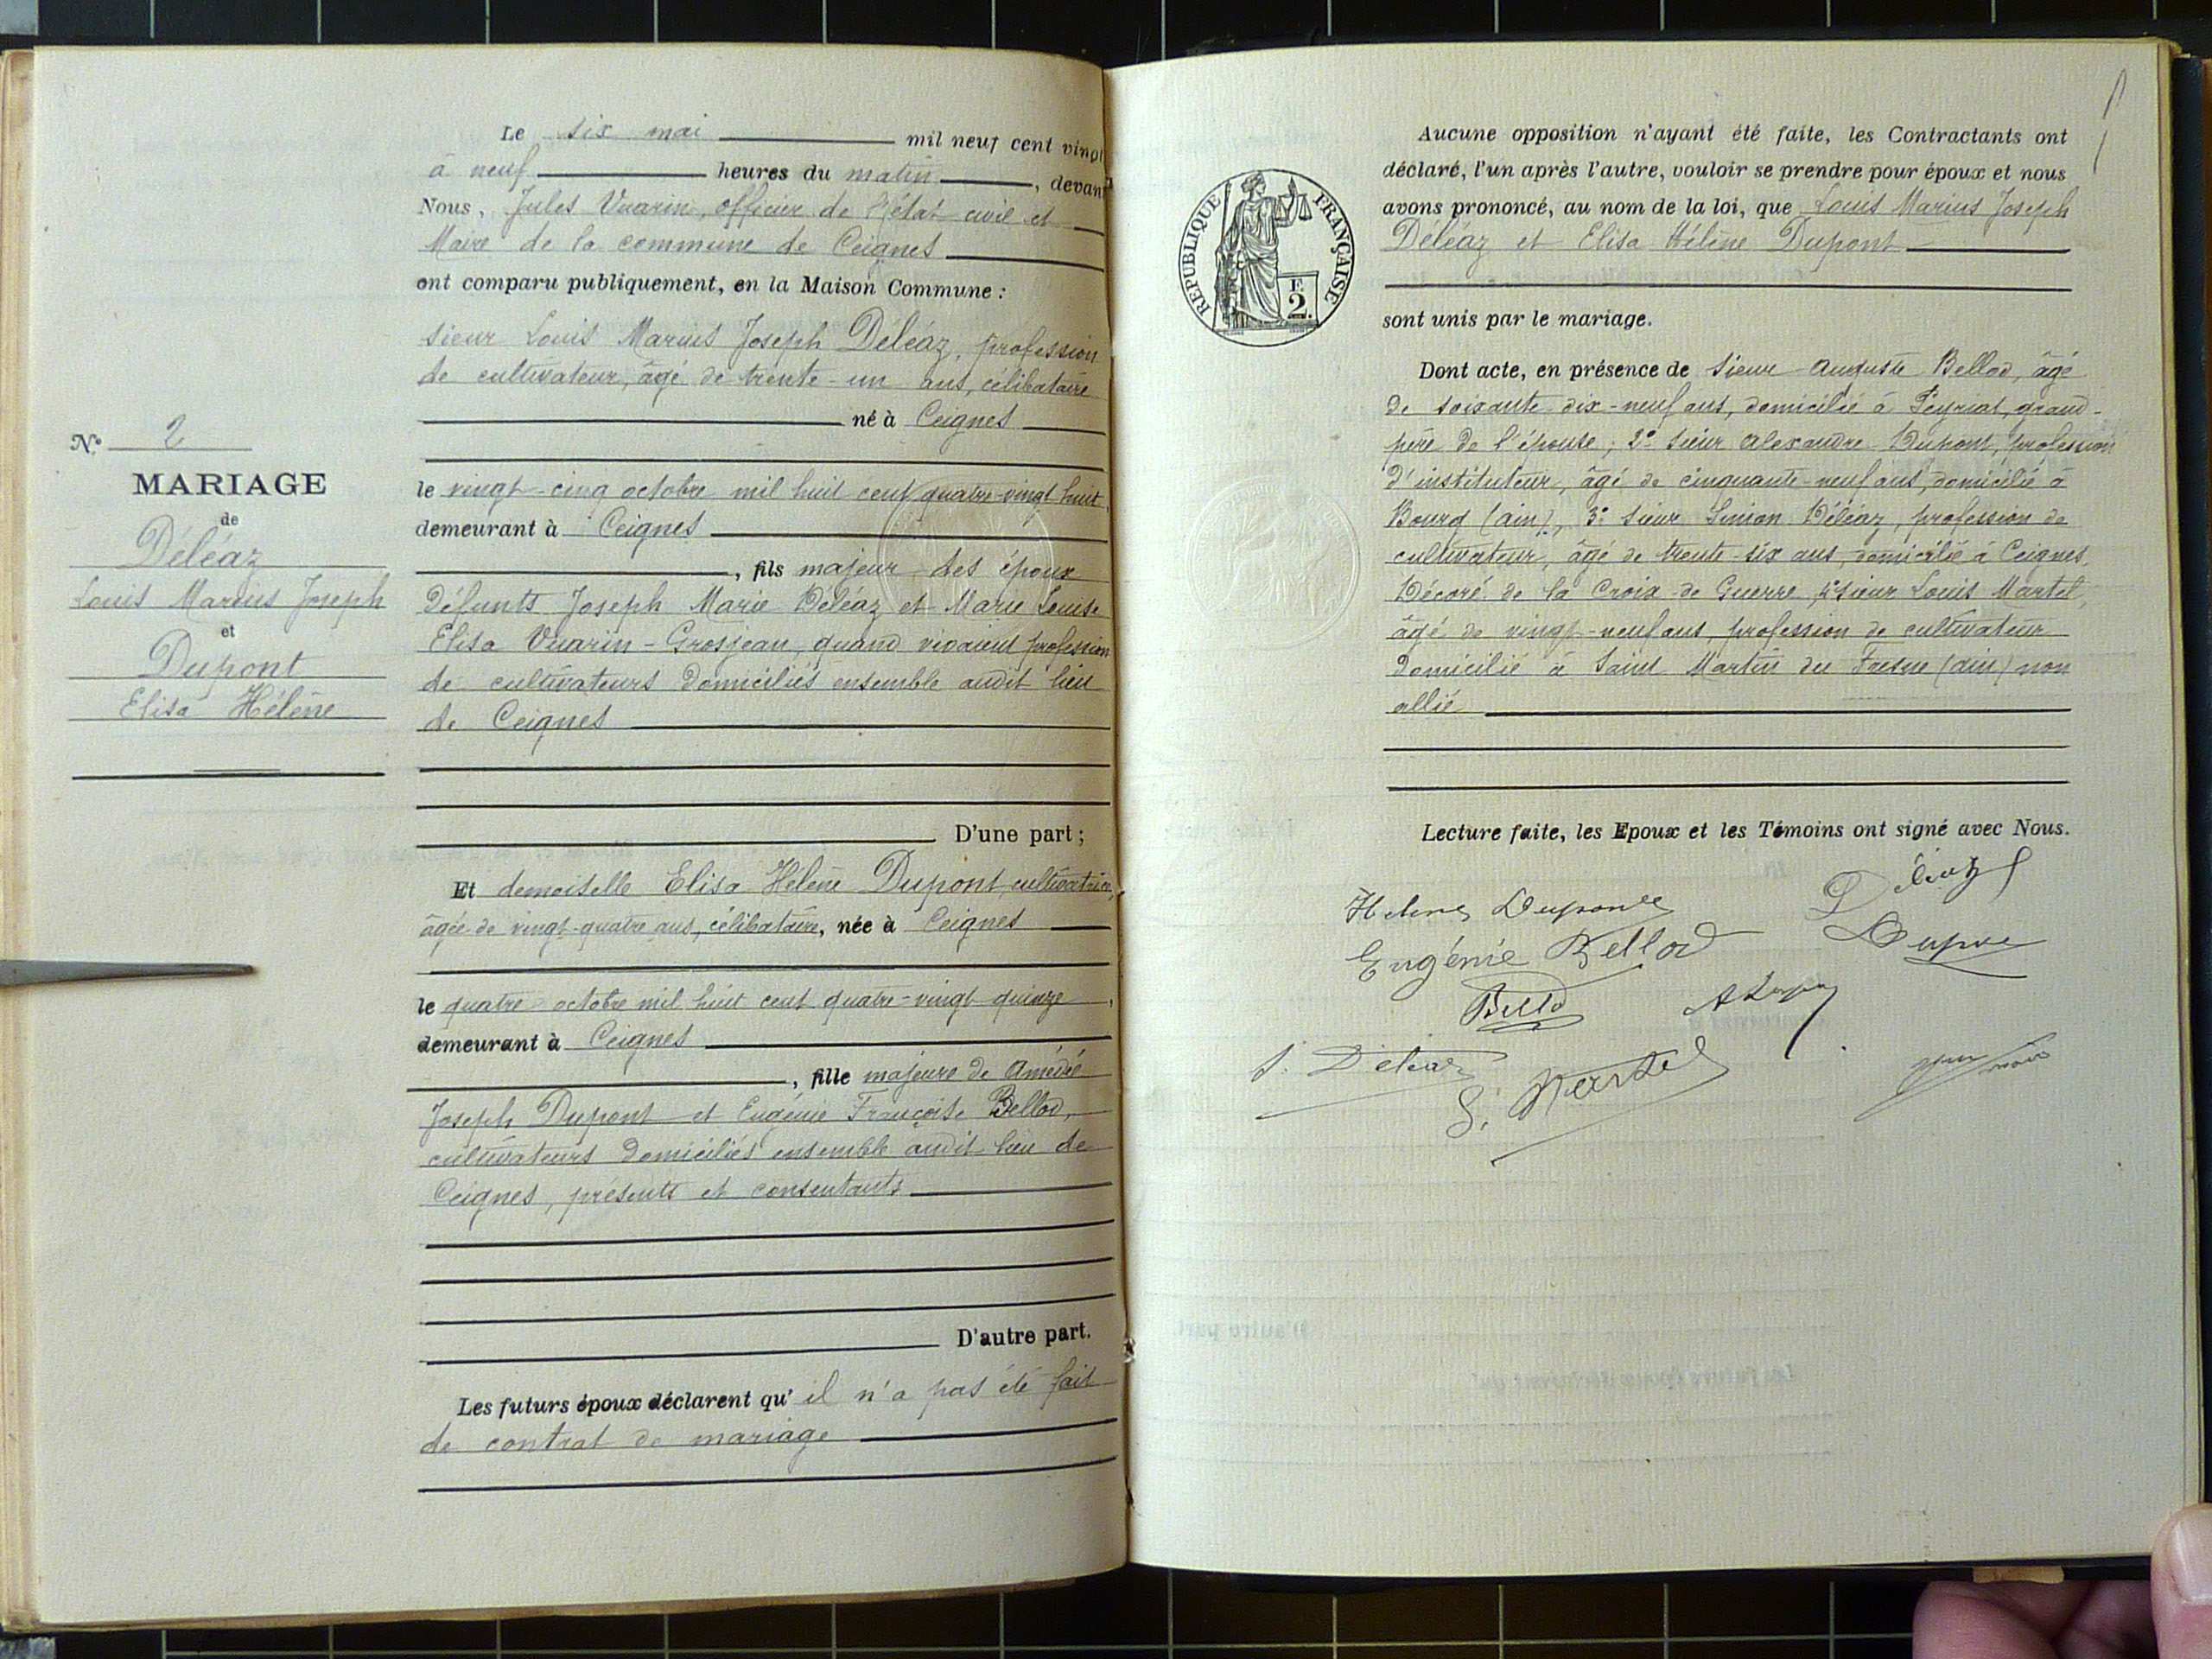 Le six mai mil neuf cent vingt
à neuf heures du matin, devant
Nous, Jules Vuarin, officier de l'état civil et
Maire de la commune de Ceignes
ont comparu publiquement, en la Maison Commune :
sieur Louis Marius Joseph Déléaz, profession
de cultivateur, âgé de trente-un ans, célibataire
né à Ceignes
le vingt-cinq octobre mil huit cent quatre-vingt huit,
demeurant à Ceignes
, fils majeur des époux
Défunts Joseph Marie Deléaz et Marie Louise
Elisa Vuarin-Grosjean, quand vivaient profession
de cultivateurs domiciliés ensemble audit lieu
de Ceignes
D'une part ;
Et demoiselle Elisa Hélène Dupont, cultivatrice,
âgée de vingt-quatre ans, célibataire, née à Ceignes
le quatre octobre mil huit cent quatre-vingt quinze,
demeurant à Ceignes
, fille majeure de Amédée
Joseph Dupont et Eugénie Françoise Bellod,
cultivateurs domiciliés ensemble audit lieu de
Ceignes, présents et consentants
D'autre part.
Les futurs époux déclarent qu'il n'a pas été fait
de contrat de mariage
No 2
MARIAGE
de
Déléaz
Louis Marius Joseph
et
Dupont
Elisa Hélène
Aucune opposition n'ayant été faite, les Contractants ont
déclaré, l'un après l'autre, vouloir se prendre pour époux et nous
avons prononcé, au nom de la loi, que Louis Marius Joseph
Déléaz et Elisa Hélène Dupont
sont unis par le mariage.
RÉPUBLIQUE FRANÇAISE
E
2.
Dont acte, en présence de sieur Auguste Bellod, âgé
de soixante dix-neuf ans, domicilié à Peyriat, grand-
père de l'épouse ; 2° sieur Alexandre Dupont, profession
d'instituteur, âgé de cinquante-neuf ans, domicilié à
Bourg (Ain), 3° sieur Simon Déléaz, profession de
cultivateur, âgé de trente-six ans, domicilié à Ceignes,
Décoré de la Croix de Guerre, 4° sieur Louis Martel,
âgé de vingt-neuf ans, profession de cultivateur
domicilié à Saint Martin du Fresne (Ain) non
allié
Lecture faite, les Epoux et les Témoins ont signé avec Nous.
Déléaz
Hélène Dupont
Eugénie Bellod
Bellod
S. Déléaz
Martel